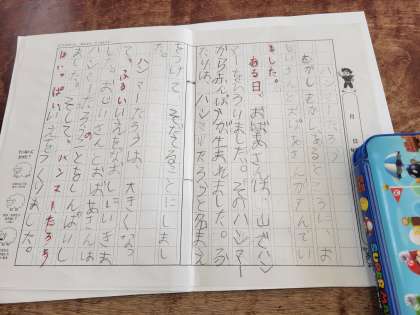 ハンマーたろう
むかしむかし、あるところに、お
じいさんとおばあさんがすんでい
ました。
ある日、おばあさんは、山でハン
マーをひろいました。そのハンマー
からおとこの子が生まれました。ふ
たりは、ハンマーたろうと名まえ
をつけて、そだてることにしまし
た。
ハンマーたろうは、大きくなっ
て、ふるいいえをなおしいいえを
おじいさんとおばあさんは
ハンマーたろうのことをしんぱいし
ました。そして、ハンマーたろう
は、いっぱいいえをつくりました。
SUPER MA